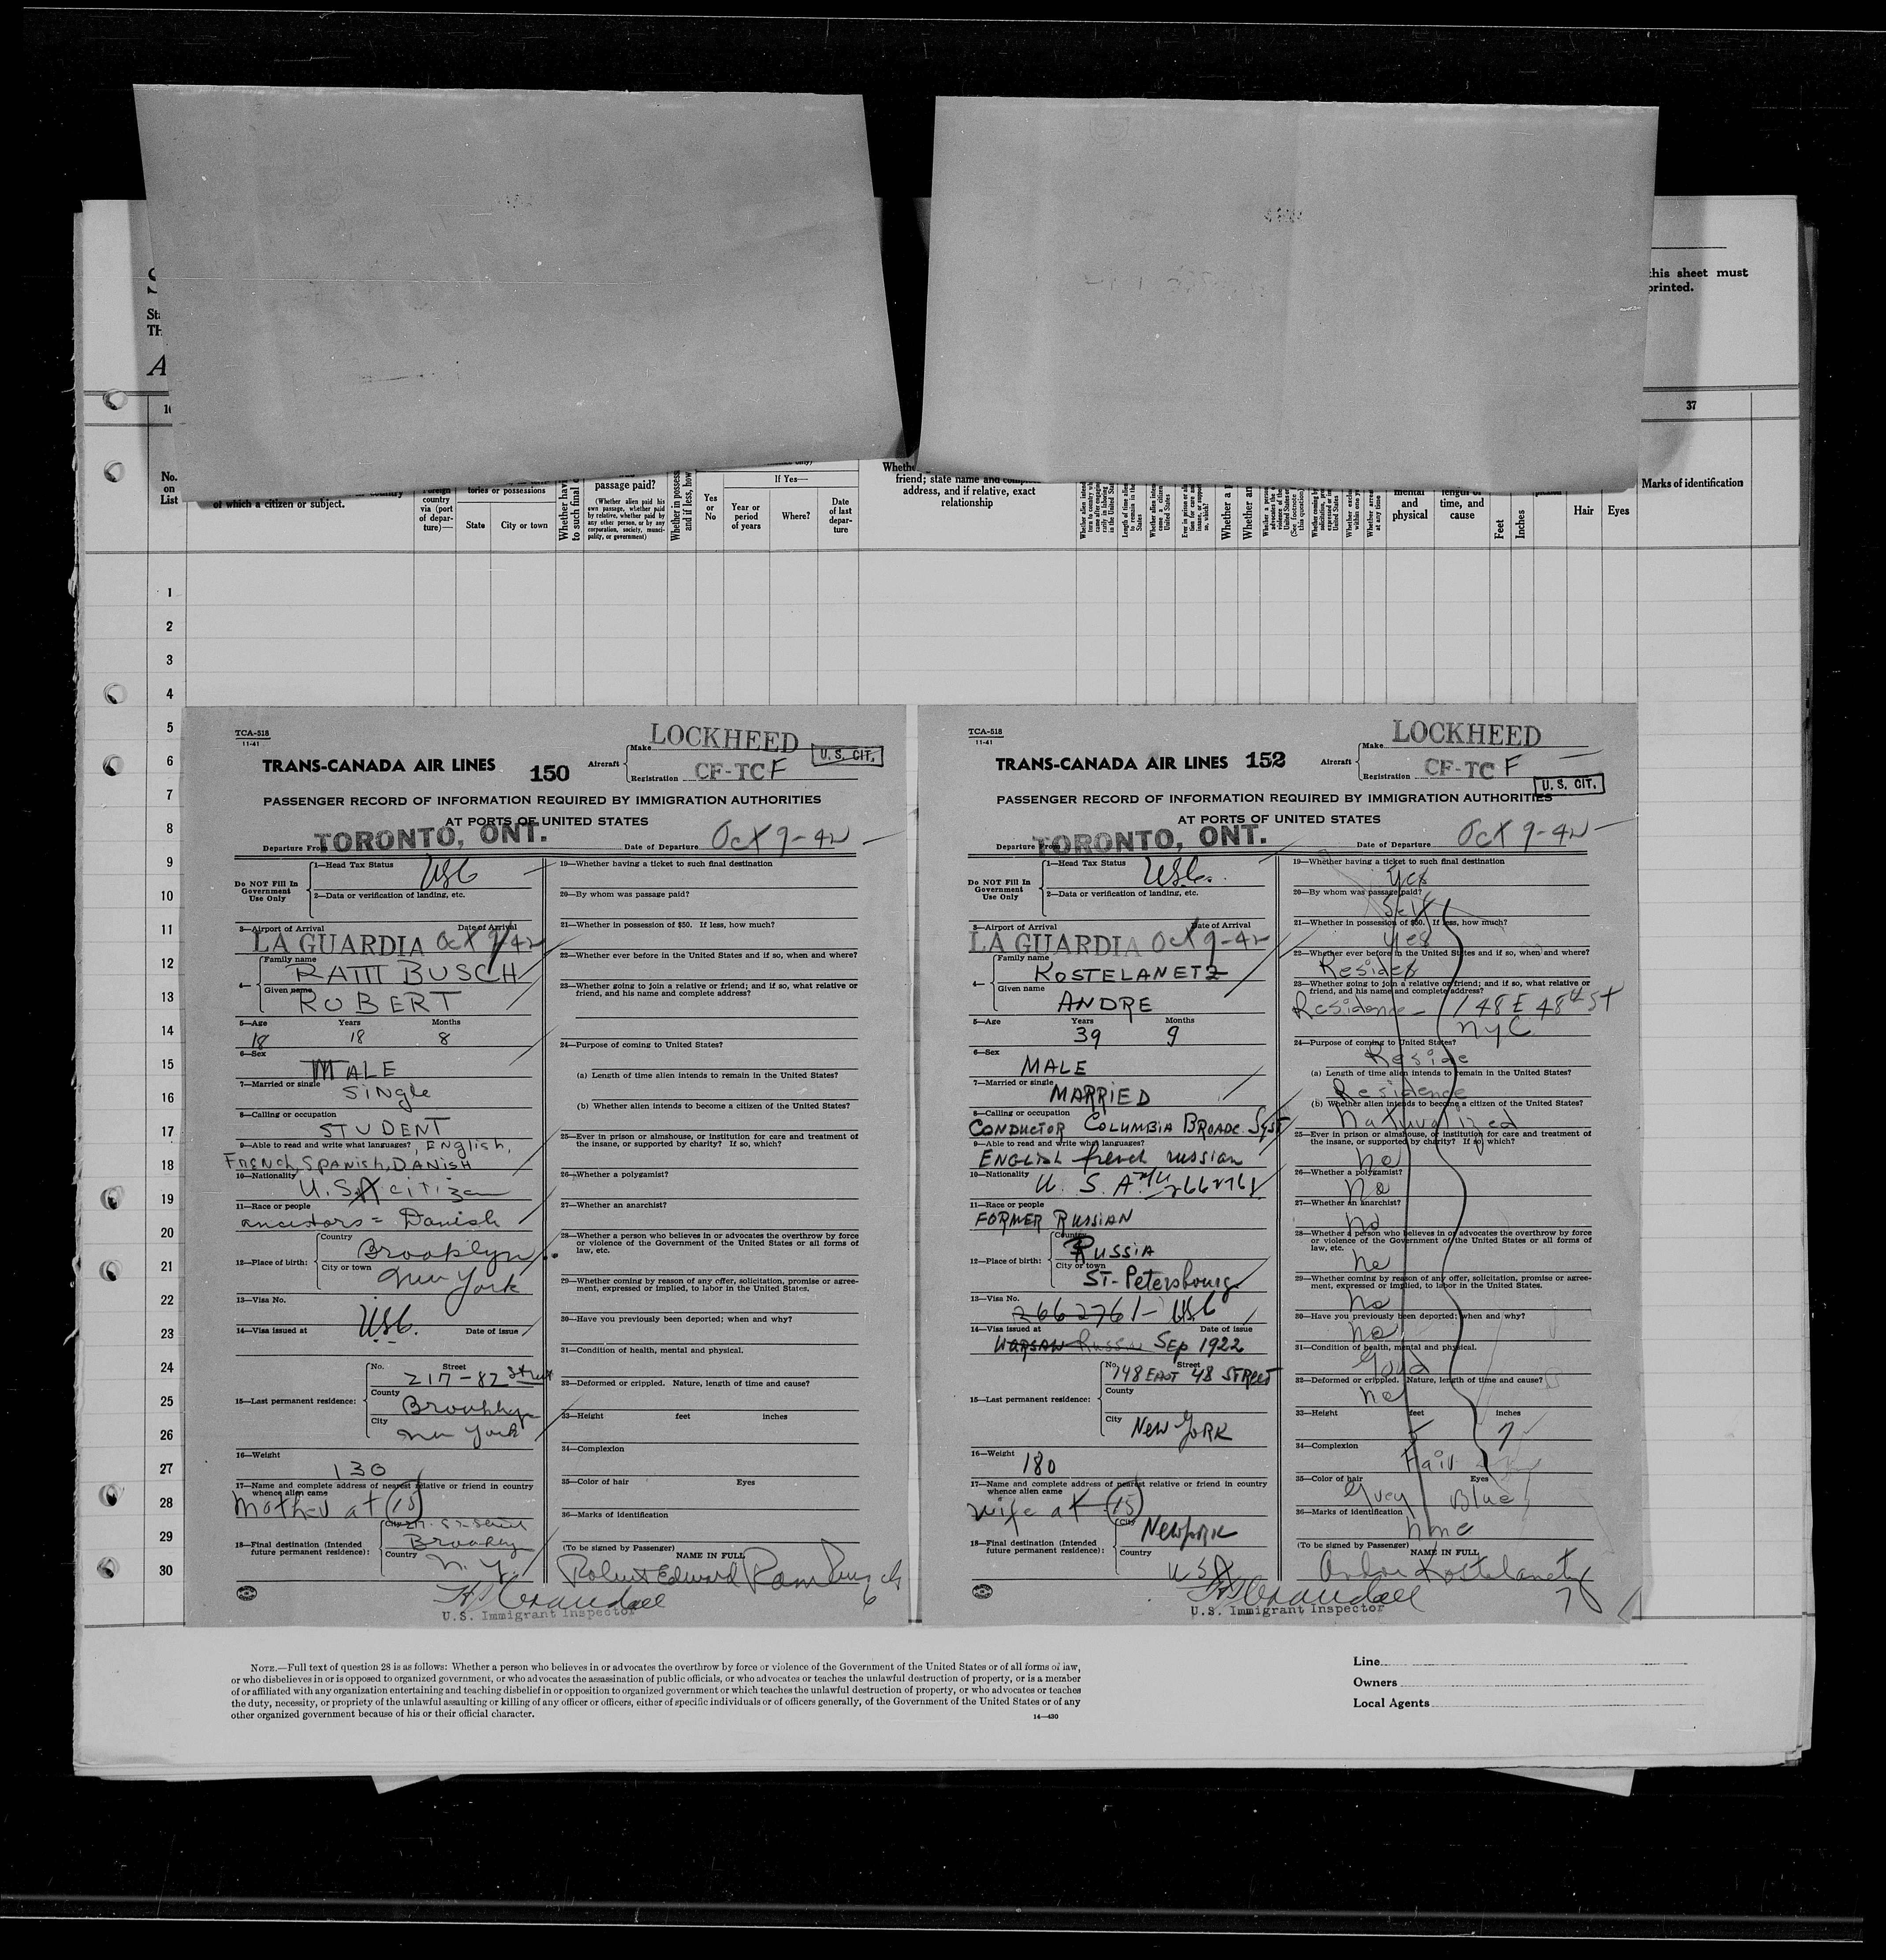 this sheet must
printed.
37
No.
on
List
of which a citizen or subject.
country
via (port
of depar-
ture)—
tories or possessions
State
City or town
passage paid?
(Whether alien paid his
own passage, whether paid
by relative, whether paid by
any other person, or by any
corporation, society, munici-
pality, or government)
Yes
or
No
If Yes—
Year or
period
of years
Where?
Date
of last
depar-
ture
friend; state name and
address, and if relative, exact
relationship
mental
and
physical
time, and
cause
Feet
Inches
Hair
Eyes
Marks of identification
1
2
3
4
5
6
7
8
9
10
11
12
13
14
15
16
17
18
19
20
21
22
23
24
25
26
27
28
29
30
TCA-518
11-41
TRANS-CANADA AIR LINES 150
Aircraft
Make LOCKHEED
Registration CF-TC F
U. S. CIT.
PASSENGER RECORD OF INFORMATION REQUIRED BY IMMIGRATION AUTHORITIES
AT PORTS OF UNITED STATES
Departure From TORONTO, ONT.
Date of Departure Oct 9-42
Do NOT Fill In
Government
Use Only
1—Head Tax Status USC
2—Data or verification of landing, etc.
3—Airport of Arrival Date of Arrival
LA GUARDIA Oct 9/42
4—
Family name
RAMBUSCH
Given name
ROBERT
5—Age Years Months
18 18 8
6—Sex
MALE
7—Married or single
Single
8—Calling or occupation
STUDENT
9—Able to read and write what languages? English,
French, Spanish, Danish
10—Nationality U.S.A citizen
11—Race or people
ancestors = Danish
12—Place of birth:
Country
Brooklyn
City or town
New York
13—Visa No.
USC.
14—Visa issued at Date of issue
15—Last permanent residence:
No. Street
217-82 Street
County
Brooklyn
City
New York
16—Weight
130
17—Name and complete address of nearest relative or friend in country
whence alien came
Mother at (15)
18—Final destination (Intended
future permanent residence):
City
Brooklyn
Country
N. Y.
19—Whether having a ticket to such final destination
20—By whom was passage paid?
21—Whether in possession of $50. If less, how much?
22—Whether ever before in the United States and if so, when and where?
23—Whether going to join a relative or friend; and if so, what relative or
friend, and his name and complete address?
24—Purpose of coming to United States?
(a) Length of time alien intends to remain in the United States?
(b) Whether alien intends to become a citizen of the United States?
25—Ever in prison or almshouse, or institution for care and treatment of
the insane, or supported by charity? If so, which?
26—Whether a polygamist?
27—Whether an anarchist?
28—Whether a person who believes in or advocates the overthrow by force
or violence of the Government of the United States or all forms of
law, etc.
29—Whether coming by reason of any offer, solicitation, promise or agree-
ment, expressed or implied, to labor in the United States.
30—Have you previously been deported; when and why?
31—Condition of health, mental and physical.
32—Deformed or crippled. Nature, length of time and cause?
33—Height feet inches
34—Complexion
35—Color of hair Eyes
36—Marks of identification
(To be signed by Passenger)
NAME IN FULL
Robert Edward Rambusch
6
H Crandall
U.S. Immigrant Inspector
TCA-518
11-41
TRANS-CANADA AIR LINES 152
Aircraft
Make LOCKHEED
Registration CF-TC F
U. S. CIT.
PASSENGER RECORD OF INFORMATION REQUIRED BY IMMIGRATION AUTHORITIES
AT PORTS OF UNITED STATES
Departure From TORONTO, ONT.
Date of Departure Oct 9-42
Do NOT Fill In
Government
Use Only
1—Head Tax Status USC.
2—Data or verification of landing, etc.
3—Airport of Arrival Date of Arrival
LA GUARDIA Oct 9-42
4—
Family name
KOSTELANETZ
Given name
ANDRE
5—Age Years Months
39 9
6—Sex
MALE
7—Married or single
MARRIED
8—Calling or occupation
CONDUCTOR COLUMBIA BROADC. SYST
9—Able to read and write what languages?
ENGLISH french russian
10—Nationality
U. S. A. 2662761
11—Race or people
FORMER RUSSIAN
12—Place of birth:
Country
RUSSIA
City or town
ST-Petersbourg
13—Visa No.
2662761- USC
14—Visa issued at Date of issue
WARSAW Russia Sep 1922
15—Last permanent residence:
No. Street
148 EAST 48 STREET
County
City
New YORK
16—Weight
180
17—Name and complete address of nearest relative or friend in country
whence alien came
wife at (15)
18—Final destination (Intended
future permanent residence):
City
New York
Country
USA
19—Whether having a ticket to such final destination
Yes
20—By whom was passage paid?
Self
21—Whether in possession of $50. If less, how much?
Yes
22—Whether ever before in the United States and if so, when and where?
Resides
23—Whether going to join a relative or friend; and if so, what relative or
friend, and his name and complete address?
Residence - 148 E 48th St
NYC
24—Purpose of coming to United States?
Reside
(a) Length of time alien intends to remain in the United States?
Residence
(b) Whether alien intends to become a citizen of the United States?
Naturalized
25—Ever in prison or almshouse, or institution for care and treatment of
the insane, or supported by charity? If so, which?
no
26—Whether a polygamist?
no
27—Whether an anarchist?
no
28—Whether a person who believes in or advocates the overthrow by force
or violence of the Government of the United States or all forms of
law, etc.
no
29—Whether coming by reason of any offer, solicitation, promise or agree-
ment, expressed or implied, to labor in the United States.
no
30—Have you previously been deported; when and why?
no
31—Condition of health, mental and physical.
Good
32—Deformed or crippled. Nature, length of time and cause?
no
33—Height feet inches
5 7
34—Complexion
Fair
35—Color of hair Eyes
Grey Blue
36—Marks of identification
none
(To be signed by Passenger)
NAME IN FULL
Andre Kostelanetz
7
H Crandall
U.S. Immigrant Inspector
NOTE.—Full text of question 28 is as follows: Whether a person who believes in or advocates the overthrow by force or violence of the Government of the United States or of all forms of law,
or who disbelieves in or is opposed to organized government, or who advocates the assassination of public officials, or who advocates or teaches the unlawful destruction of property, or is a member
of or affiliated with any organization entertaining and teaching disbelief in or opposition to organized government or which teaches the unlawful destruction of property, or who advocates or teaches
the duty, necessity, or propriety of the unlawful assaulting or killing of any officer or officers, either of specific individuals or of officers generally, of the Government of the United States or of any
other organized government because of his or their official character.
14—430
Line
Owners
Local Agents